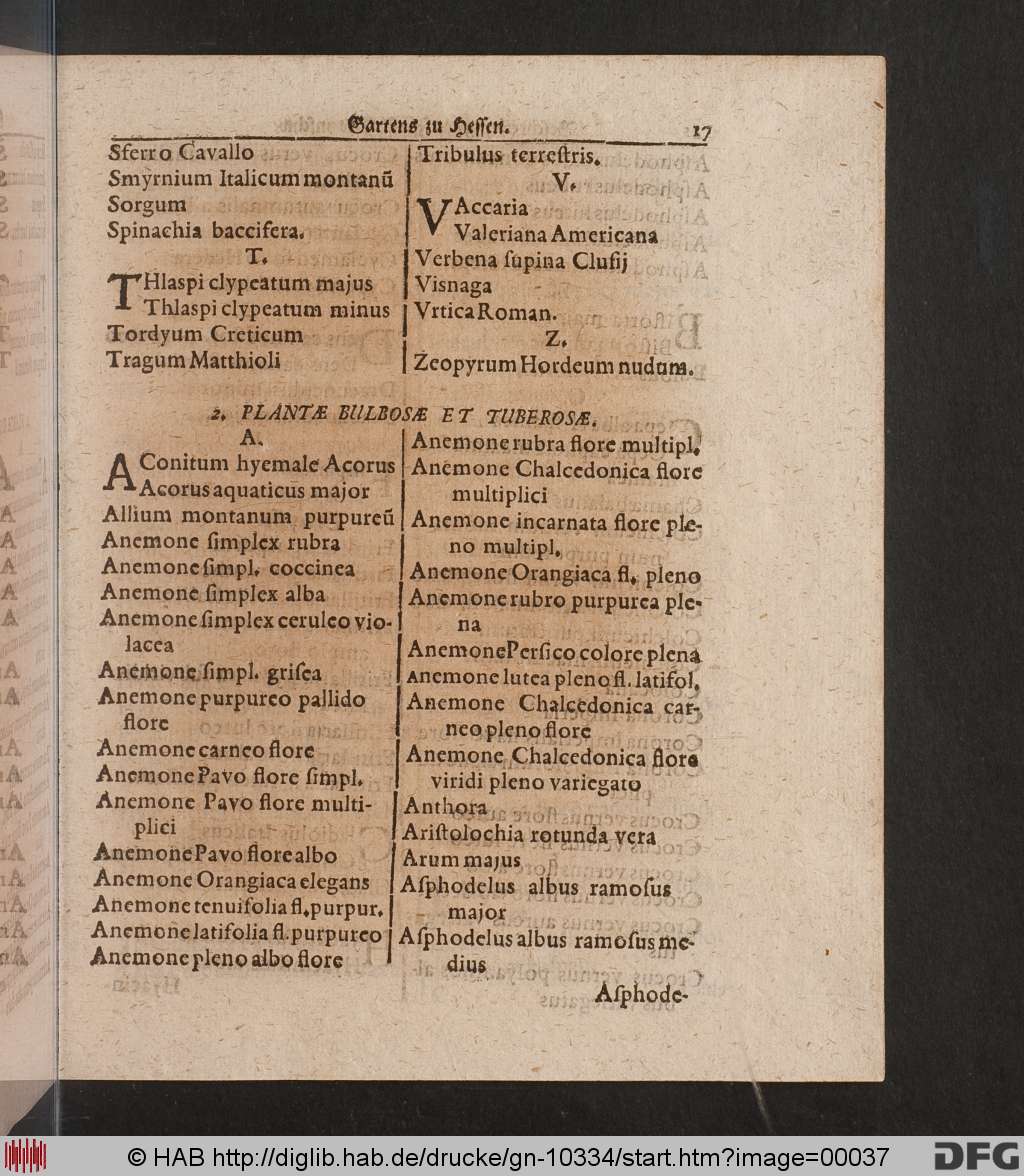 Gartens zu Hessen. 17
Sferro Cavallo
Smyrnium Italicum montanū
Sorgum
Spinachia baccifera.
T.
THlaspi clypeatum majus
Thlaspi clypeatum minus
Tordyum Creticum
Tragum Matthioli
Tribulus terreſtris.
V.
VAccaria
Valeriana Americana
Verbena ſupina Cluſij
Visnaga
Vrtica Roman.
Z.
Zeopyrum Hordeum nudum.
2. PLANTÆ BULBOSÆ ET TUBEROSÆ.
A.
AConitum hyemale Acorus
Acorus aquaticus major
Allium montanum purpureū
Anemone ſimplex rubra
Anemone ſimpl. coccinea
Anemone ſimplex alba
Anemone ſimplex ceruleo vio-
lacea
Anemone ſimpl. griſea
Anemone purpureo pallido
flore
Anemone carneo flore
Anemone Pavo flore ſimpl.
Anemone Pavo flore multi-
plici
Anemone Pavo flore albo
Anemone Orangiaca elegans
Anemone tenuifolia fl. purpur.
Anemone latifolia fl. purpureo
Anemone pleno albo flore
Anemone rubra flore multipl.
Anemone Chalcedonica flore
multiplici
Anemone incarnata flore ple-
no multipl.
Anemone Orangiaca fl. pleno
Anemone rubro purpurea ple-
na
Anemone Perſico colore plena
Anemone lutea pleno fl. latifol.
Anemone Chalcedonica car-
neo pleno flore
Anemone Chalcedonica flore
viridi pleno variegato
Anthora
Ariſtolochia rotunda vera
Arum majus
Aſphodelus albus ramoſus
major
Aſphodelus albus ramoſus me-
dius
Aſphode-
© HAB http://diglib.hab.de/drucke/gn-10334/start.htm?image=00037
DFG